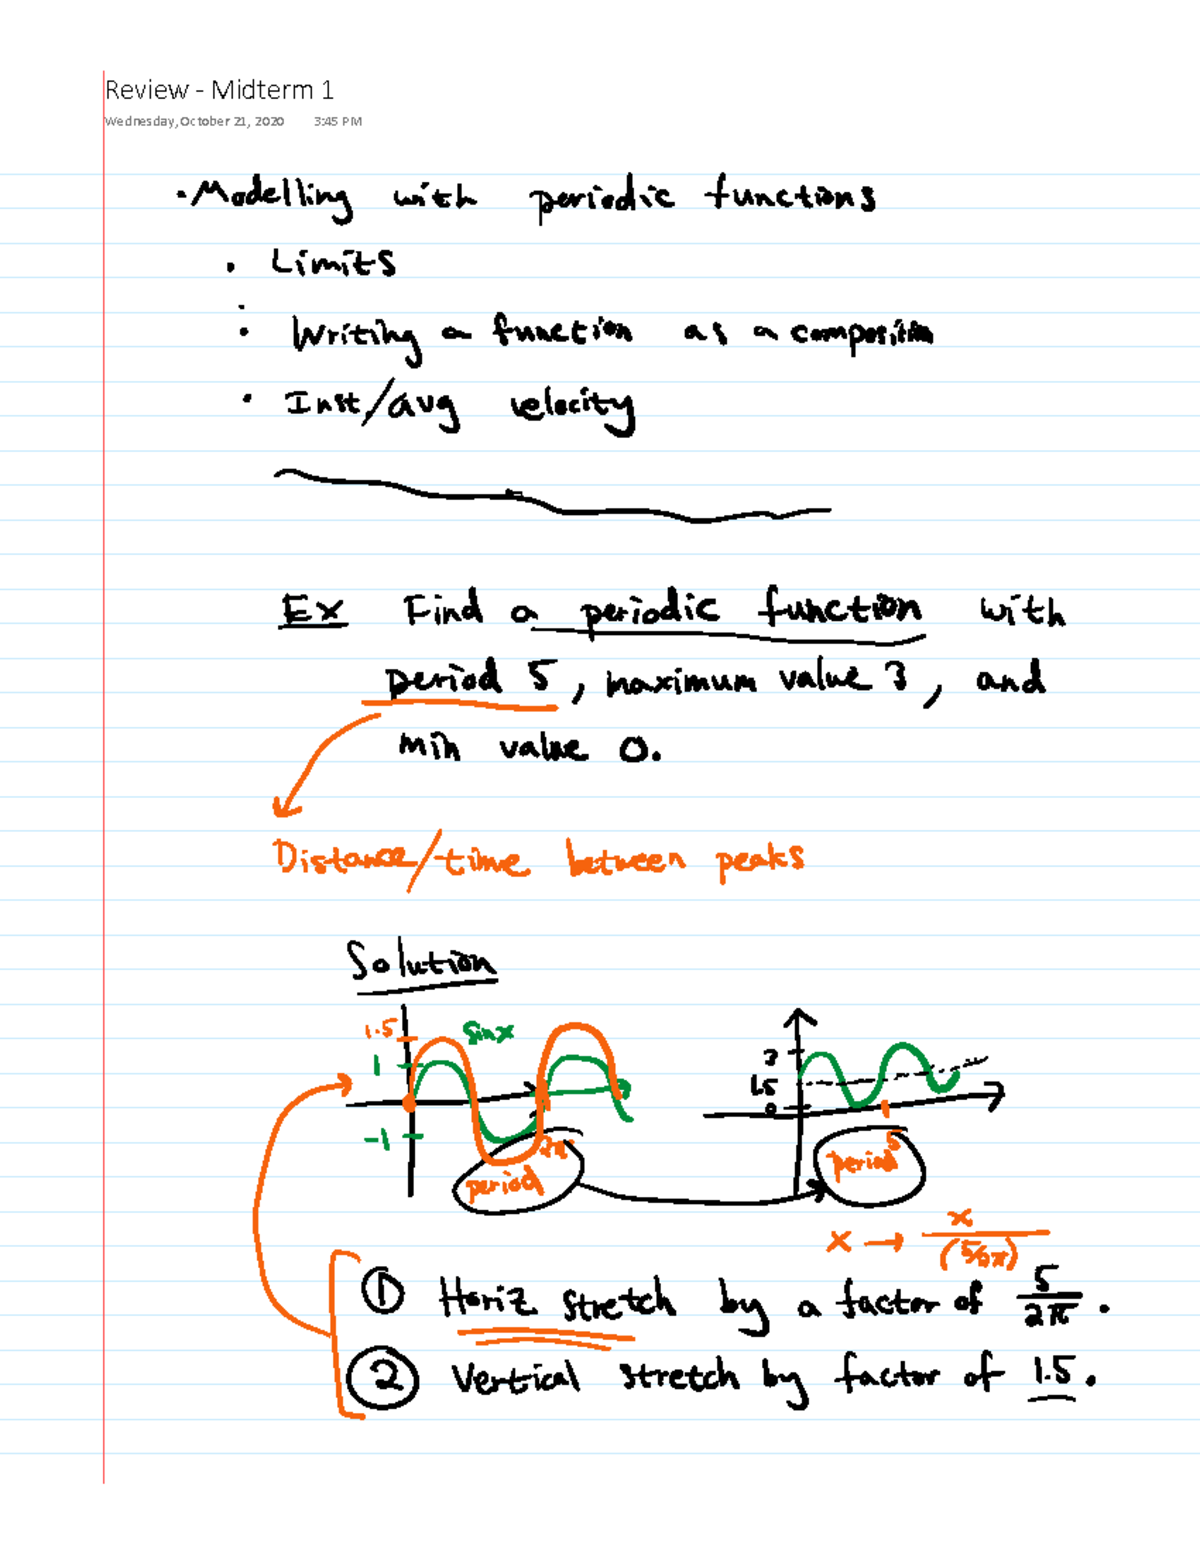 Review - Midterm 1
Wednesday, October 21, 2020 3:45 PM
• Modelling with periodic functions
• Limits
• Writing a function as a composition
• Inst/avg velocity
Ex Find a periodic function with
period 5, maximum value 3, and
min value 0.
Distance/time between peaks
Solution
1.5
sinx
1
-1
2π
period
3
1.5
0
5
period
x → x/(5/2π)
① Horiz stretch by a factor of 5/2π.
② Vertical stretch by factor of 1.5.